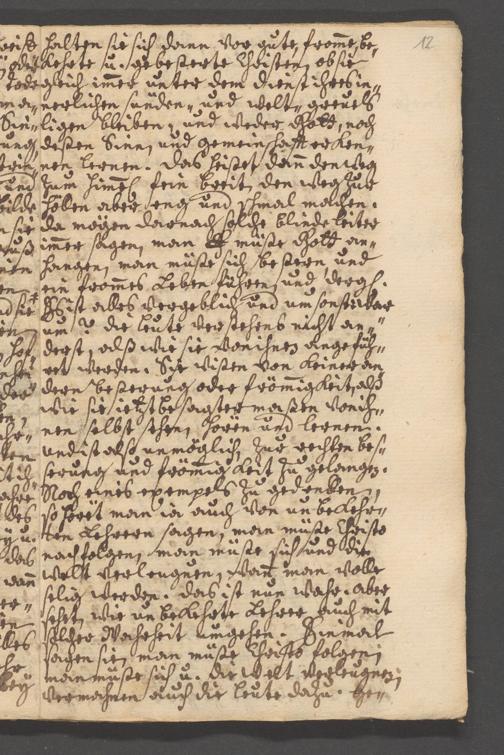 12
halten sie sich dann vor gute, fromme, be-
kehrte u. gebesserte Christen, ob sie
gleich immer unter dem Dienst ihres in-
nerlichen sünden- und welt-greuels
ligen bleiben, und weder Gott, noch
deßen Sinn, und gemeinschafft erken-
nen lernen. Das heiset dann den weg
zum Himmel fein breit, den weg zur
Höllen aber eng und schmal machen.
da mögen darnach solche blinde leiter
immer sagen, man müße Gott an-
hangen, man müße sich beßern und
ein frommes Leben führen, und dergl.
Es ist alles vergeblich und umsonst
um die leute verstehens nicht an-
derst, alß wie sie von ihnen angefüh-
ret werden. Sie wißen von keiner an
dern beßerung oder frömmigkeit, alß
wie sie jetzt besagter maßen von ih-
nen selbst sehen, hören und lernen.
und ist alß unmöglich, zur rechten bes-
serung und frömmigkeit zu gelangen.
Noch eines exempels zu gedenken,
so höret man ja auch von unbekehr-
ten Lehrern sagen, man müße Christo
nachfolgen, man müße sich und die
welt verleugnen, wann man wolle
selig werden. das ist nun wahr. aber
sehet, wie unbekehrte Lehrer auch mit
solcher Wahrheit umgehen. Einmal
sagen sie, man müße Christo folgen,
man müße sich u. die welt verleugnen,
vermahnen auch die leute dazu.